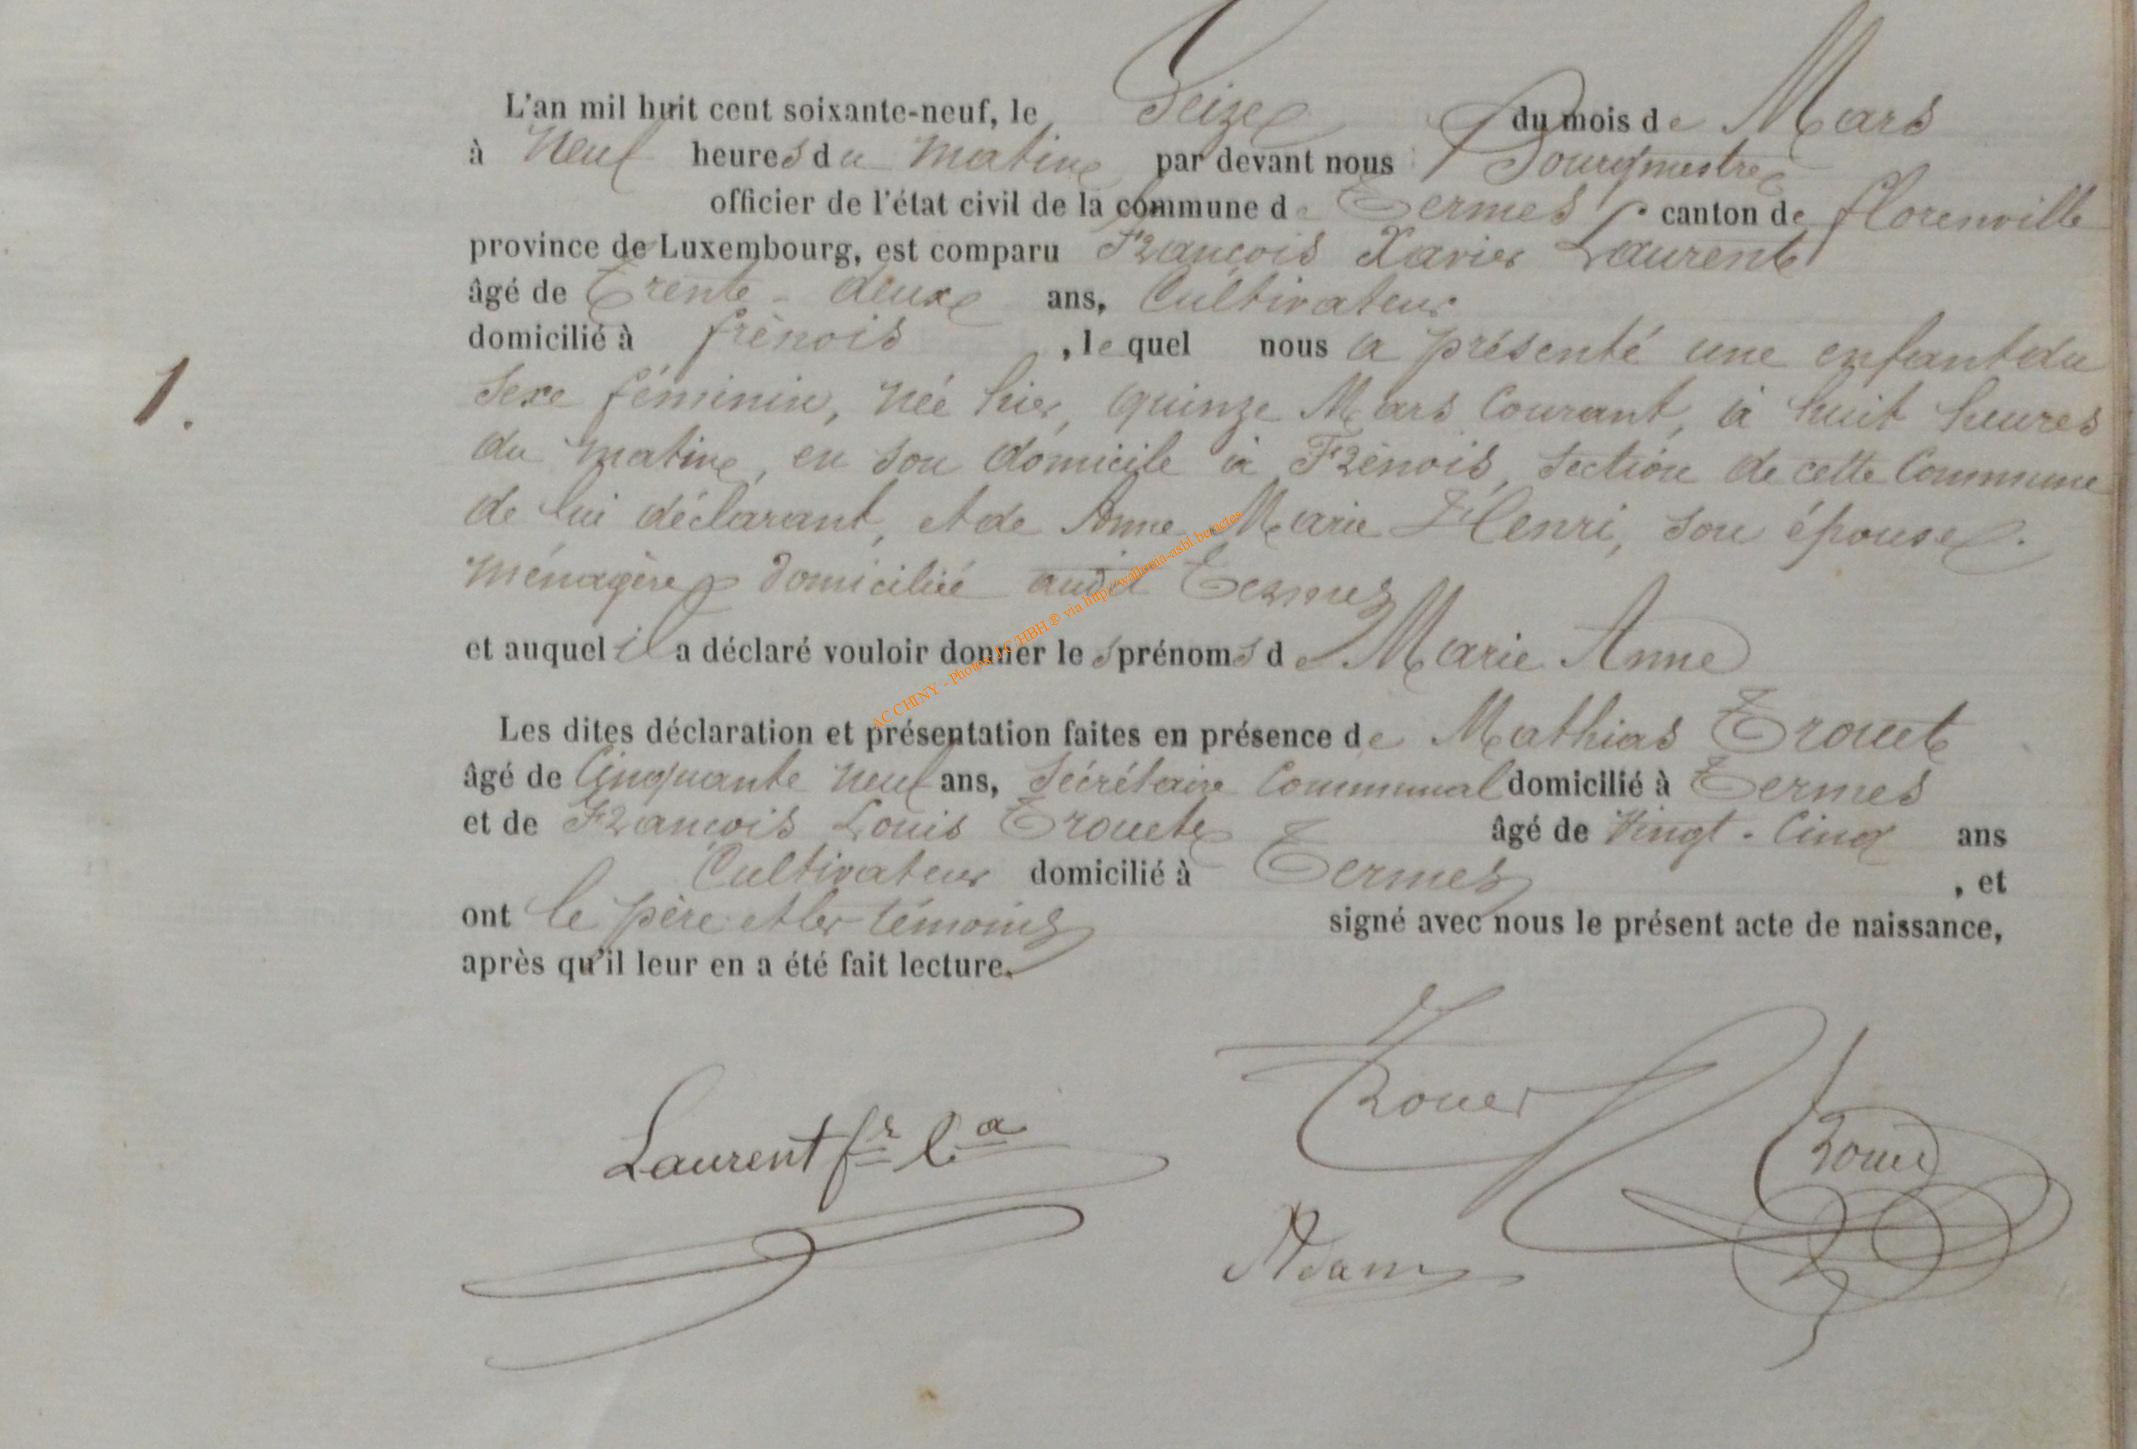 L'an mil huit cent soixante-neuf, le Seize du mois de Mars
à Neuf heures du matin par devant nous Bourgmestre
officier de l'état civil de la commune de Termes, canton de florenville
province de Luxembourg, est comparu François Xavier Laurent
âgé de Trente-deux ans, Cultivateur
domicilié à frénois, lequel nous a présenté une enfant du
1.
Sexe féminin, née hier, quinze Mars Courant, à huit heures
du matin, en son domicile à Frénois, Section de cette Commune
de lui déclarant, et de Anne Marie Henri, son épouse.
Ménagère domiciliée audit Termes
et auquel il a déclaré vouloir donner les prénoms de Marie Anne
AC CHINY - Photos LCHBH® via http://wallonia-asbl.be/actes
Les dites déclaration et présentation faites en présence de Mathias Trouet
âgé de Cinquante Neuf ans, Sécrétaire Communal domicilié à Termes
et de François Louis Trouet âgé de Vingt-Cinq ans
Cultivateur domicilié à Termes, et
ont le père et les témoins signé avec nous le présent acte de naissance,
après qu'il leur en a été fait lecture.
Trouet
Laurent fr
Trouet
Adam